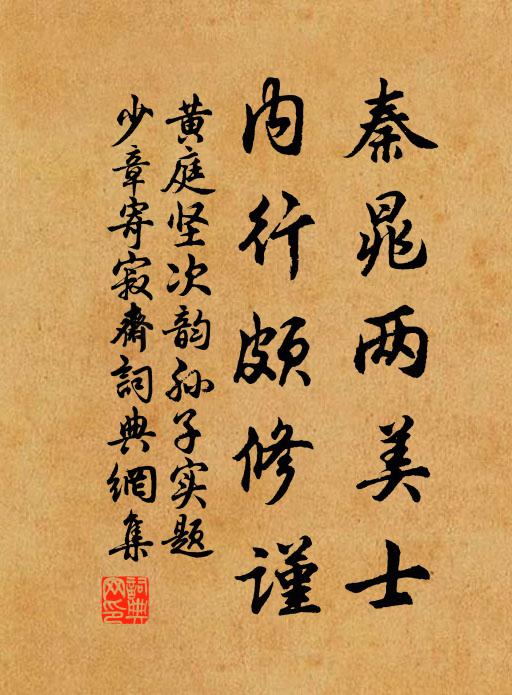 秦晁两美士
内行颇修谨
黄庭坚次韵孙子实题
少章寄寂斋詞典網集
詞典网印